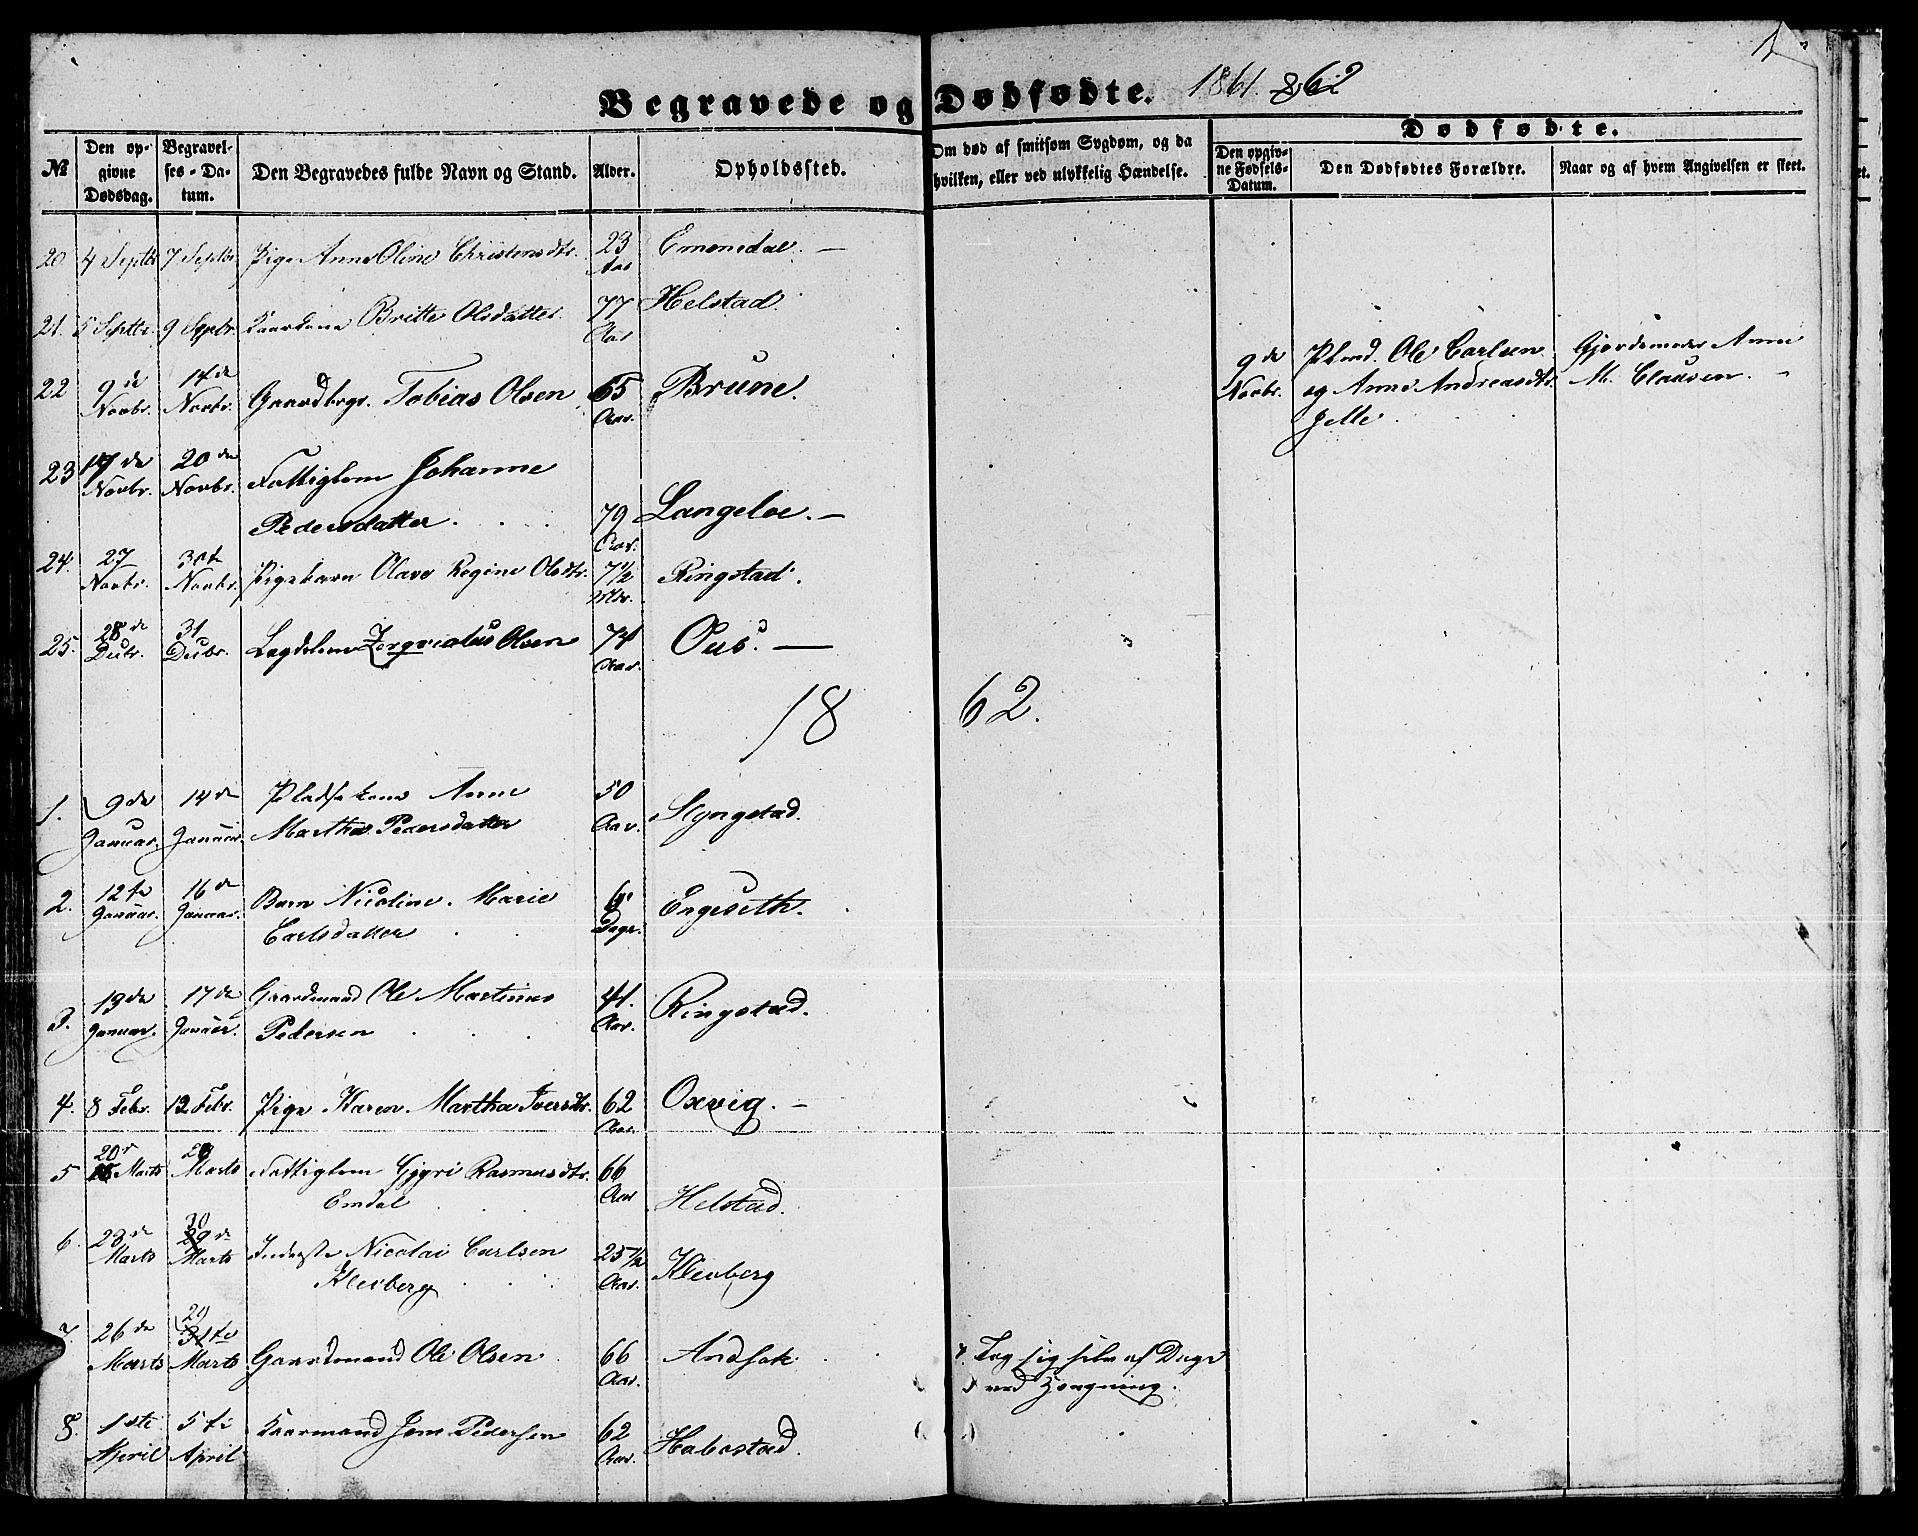 Begravede og Dødfødte. 1861. & 62
№
Den opgivne Dødsdag.
Begravelses-Datum.
Den Begravedes fulde Navn og Stand.
Alder.
Opholdssted.
Om død af smitsom Sygdom, og da hvilken, eller ved ulykkelig Hændelse.
Dødfødte.
Den opgivne Fødsels-Datum.
Den Dødfødtes Forældre.
Naar og af hvem Angivelsen er skeet.
20 4 Septbr 7 Septbr Pige Anne Oline Christensdtr. 23 Aar Emdal. —
21. 5 Septbr. 9 Septbr. Kaarkone Britte Olsdatter 77 Aar Helstad.
22 9de Novbr. 14de Novbr. Gaardbrgr. Tobias Olsen 65 Aar. Brune.
9de Novbr. Plmd. Ole Carlsen og Anne Andreasdtr. Jelle.
Gjordemoder Anne M. Clausen. -
23 17de Novbr. 20de Novbr. Fattiglem Johanne
Pedersdatter. 79 Aar. Langeloe. —
24. 27 Novbr. 30te Novbr. Pigebarn Olave Regine Olsdtr. 7 1/2 Mdr. Ringstad.
25. 28de Decbr. 31 Decbr. Lægdslem Olsen 74 Aar.
1862.
1. 9de Januar. 14de Januar. Pladsekone Anne
Martha Pedersdatter 50 Aar. Slyngstad.
2. 12te Januar. 16de Januar. Barn Nicoline Marie
Carlsdatter 6 Dage. Engeseth.
3. 13de Januar. 17de Januar. Gaardmand Ole Martinus
Pedersen 41. Aar. Ringstad.
4. 8 Febr. 12 Febr. Pige Karen Martha Iversdtr. 62 Aar. Oxvig. —
5 20 Marts Marts Fattiglem Gjyri Rasmusdtr.
Emdal 66 Aar Helstad.
6. 23de Marts 30 29de Marts Inderste Nicolai Carlsen
Klevberg 25 1/2 Aar. Klevberg
7. 26de Marts 31te Marts Gaardmand Ole Olsen 66 Aar. Andsok
Tog sig selv af Dage
ved Hængning.
8. 1ste April 5te April Kaarmand Jens Pedersen 62 Aar. Habostad.